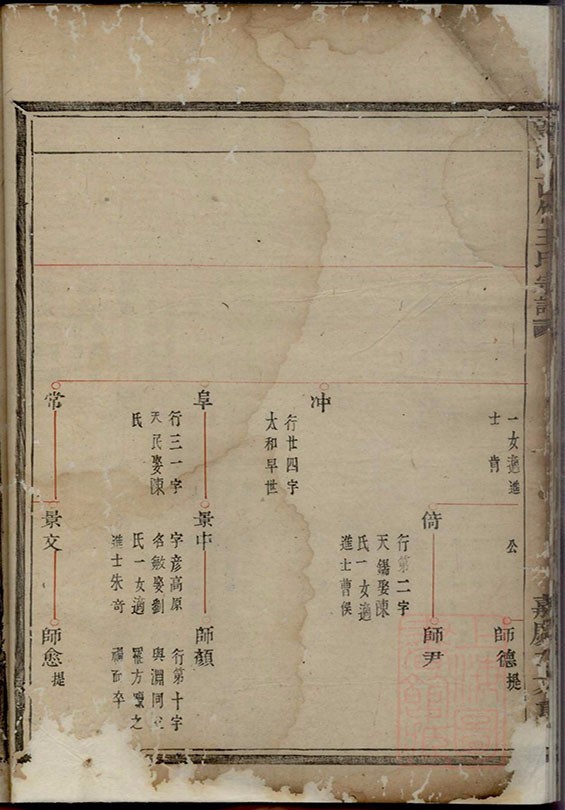 王氏宗譜
嘉慶
一女適進
士肯
公
師德
提
倚
行第二字
天錫娶陳
氏一女適
進士曹俁
師尹
冲
行廿四字
太和早世
阜
行三一字
天民娶陳
氏
景中
字彥高原
名敏娶劉
氏一女適
進士朱奇
師顏
行第十字
與淵同
羅方
常
景文
師愈
提